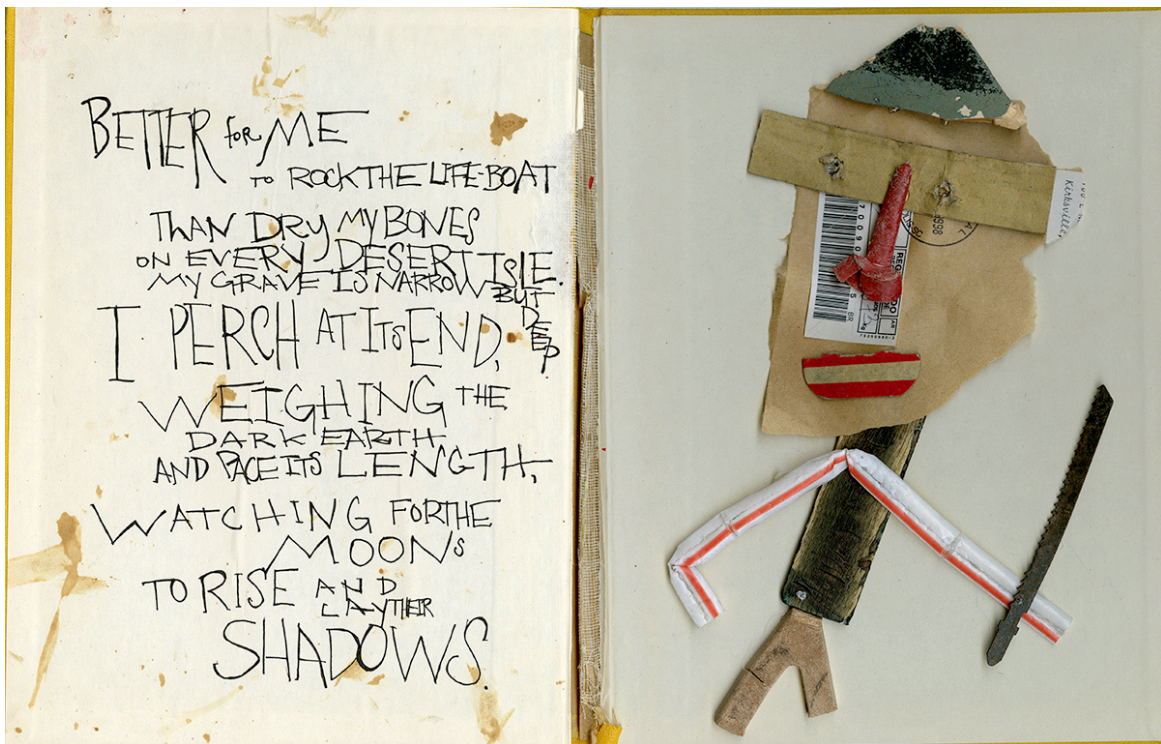 BETTER for ME
TO ROCK THE LIFE-BOAT
THAN DRY MY BONES
ON EVERY DESERT ISLE.
MY GRAVE IS NARROW BUT
DEEP
I PERCH AT ITS END,
WEIGHING THE
DARK EARTH
AND PACE ITS LENGTH,
WATCHING FOR THE
MOONS
TO RISE AND
LAY THEIR
SHADOWS.
Kirksville,
1998